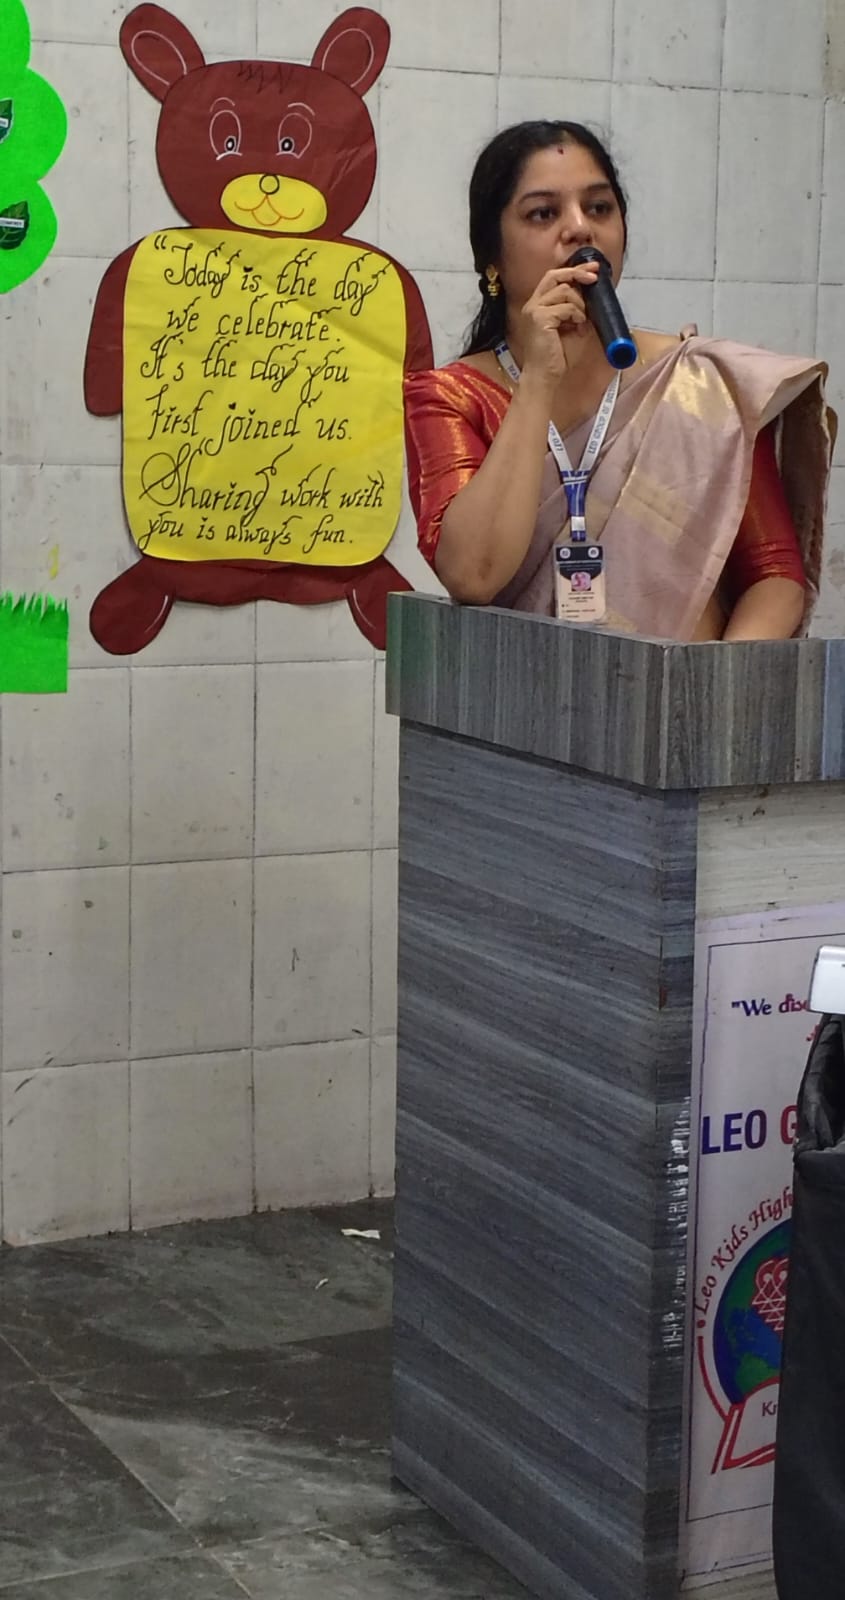 "Today is the day
we celebrate.
It's the day you
first joined us.
Sharing work with
you is always fun.
LEO GROUP OF
"We
LEO G
Leo Kids High